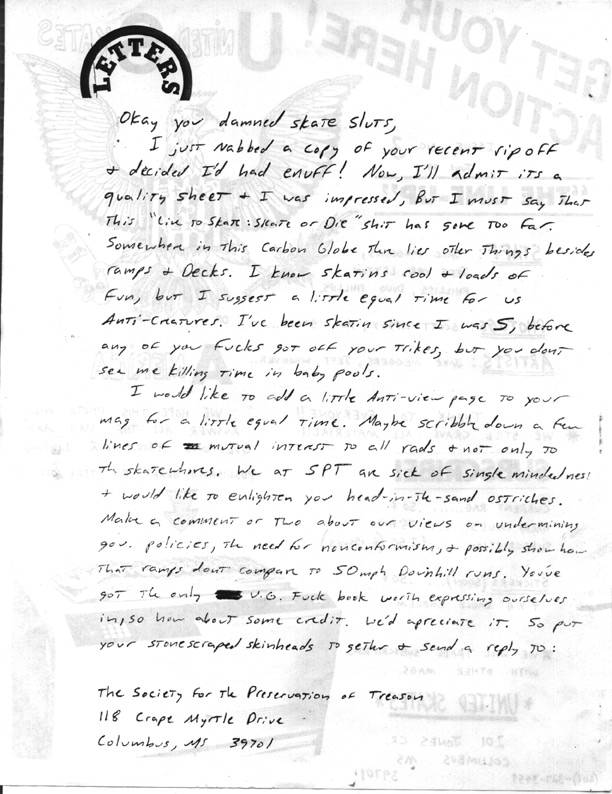 LETTERS
Okay you damned skate sluts,
I just nabbed a copy of your recent ripoff
+ decided I'd had enuff! Now, I'll admit its a
quality sheet + I was impressed, But I must say that
this "Live to Skate: Skate or Die" shit has gone too far.
Somewhere in this Carbon Globe ther lies other things besides
ramps + Decks. I know skatins cool + loads of
fun, but I suggest a little equal time for us
Anti-Creatures. I've been skatin since I was 5, before
any of you Fucks got off your trikes, but you dont
see me killing time in baby pools.
I would like to add a little Anti-view page to your
mag for a little equal time. Maybe scribble down a few
lines of mutual interest to all rads + not only to
th skatewhores. We at SPT are sick of single mindedness
+ would like to enlighten you head-in-th-sand ostriches.
Make a comment or two about our views on undermining
gov. policies, the need for nonconformism, + possibly show how
that ramps dont compare to 50mph Downhill runs. You've
got the only U.G. Fuck book worth expressing ourselves
in, so how about some credit. We'd apreciate it. So put
your stonescraped skinheads to gether + send a reply to:
The Society for the Preservation of Treason
118 Crape Myrtle Drive
Columbus, MS 39701
GET YOUR
ACTION HERE!
UNITED SKATES
"THE LINE UP"
ARTISTS:
WITH OTHER MAGS
* UNITED SKATES *
201 JONES CR.
COLUMBUS MS
39701